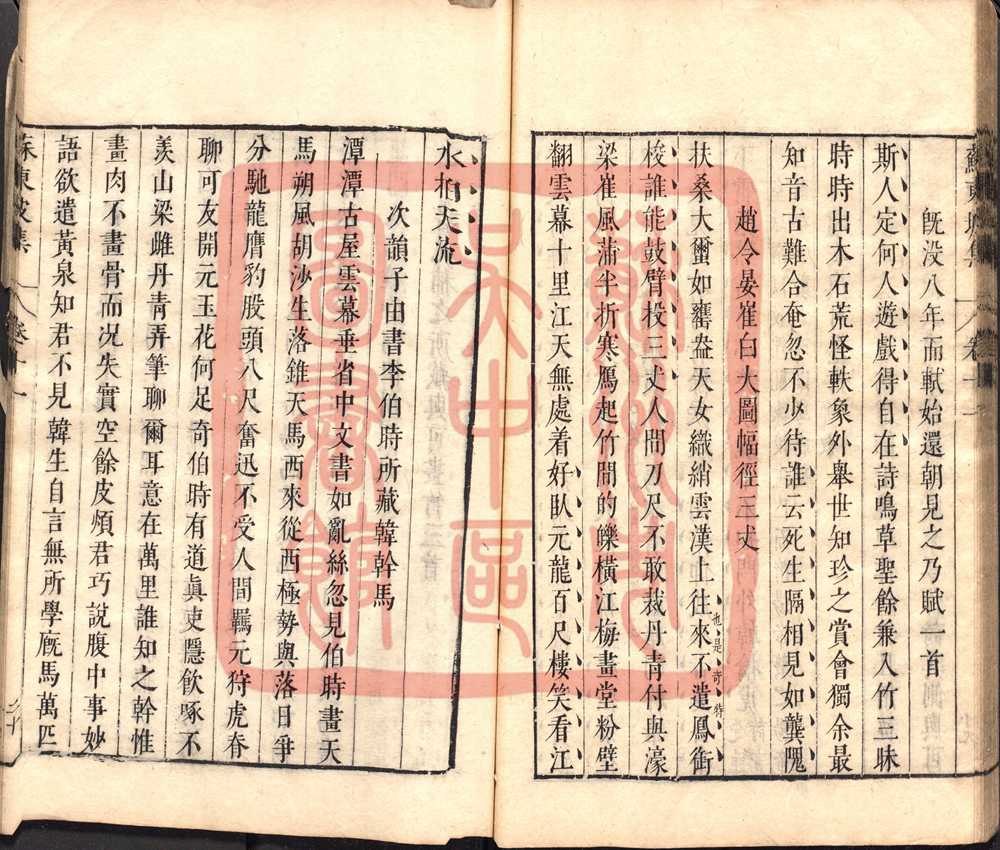 蘇東坡集 八 卷十一
既没八年而軾始還朝見之乃賦一首
斯人定何人遊戲得自在詩鳴草聖餘兼入竹三昧
時時出木石荒怪軼象外舉世知珍之賞會獨余最
知音古難合奄忽不少待誰云死生隔相見如龔隗
趙令晏崔白大圖幅徑三丈
扶桑大蠒如甕盎天女織綃雲漢上往來不遣鳳銜
也是奇特
梭誰能鼓臂投三丈人間刀尺不敢裁丹青付與濠
梁崔風蒲半折寒鴈起竹間的皪橫江梅畫堂粉壁
翻雲幕十里江天無處着好臥元龍百尺樓笑看江
水拍天流
次韻子由書李伯時所藏韓幹馬
潭潭古屋雲幕垂省中文書如亂絲忽見伯時畫天
馬朔風胡沙生落錐天馬西來從西極勢與落日爭
分馳龍膺豹股頭八尺奮迅不受人間羈元狩虎脊
聊可友開元玉花何足奇伯時有道眞吏隱飲啄不
羨山梁雌丹青弄筆聊爾耳意在萬里誰知之幹惟
畫肉不畫骨而况失實空餘皮煩君巧說腹中事妙
語欲遣黃泉知君不見韓生自言無所學廐馬萬匹
蘇東坡集 八 卷十一 二十
蘇州市
吳中區
圖書館